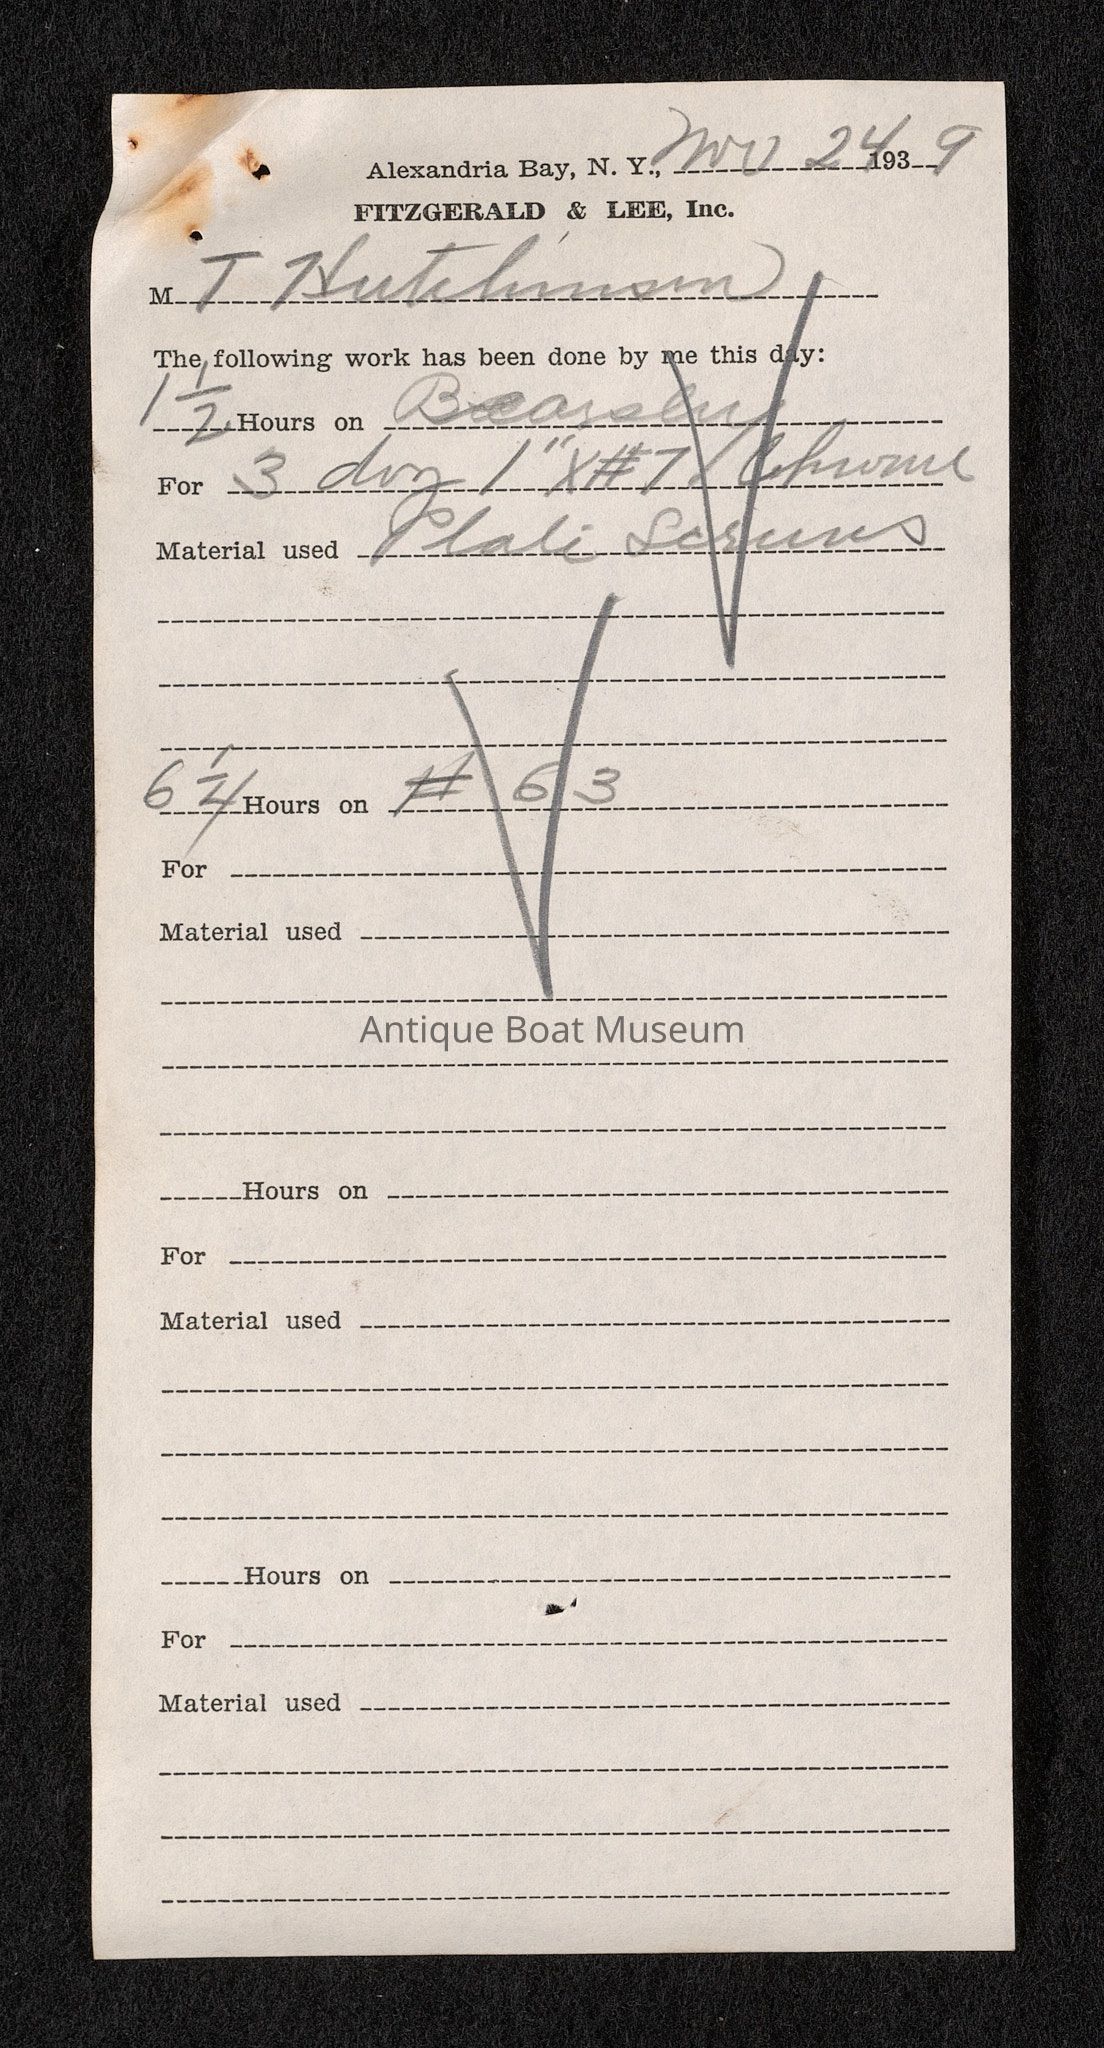 Alexandria Bay, N. Y., Nov 24 1939
FITZGERALD & LEE, Inc.
M T Hutchinson
The following work has been done by me this day:
1 1/2 Hours on
For 3 doz 1" X #7 Chrome
Material used Plate Screws
6 1/4 Hours on # 63
For
Material used
Antique Boat Museum
Hours on
For
Material used
Hours on
For
Material used